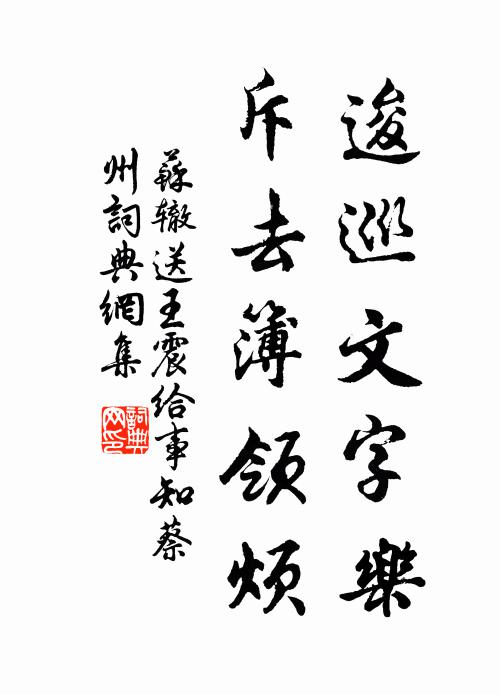 逡巡文字樂
斥去簿領煩
蘇轍送王震給事知蔡
州詞典網集
詞典
网印